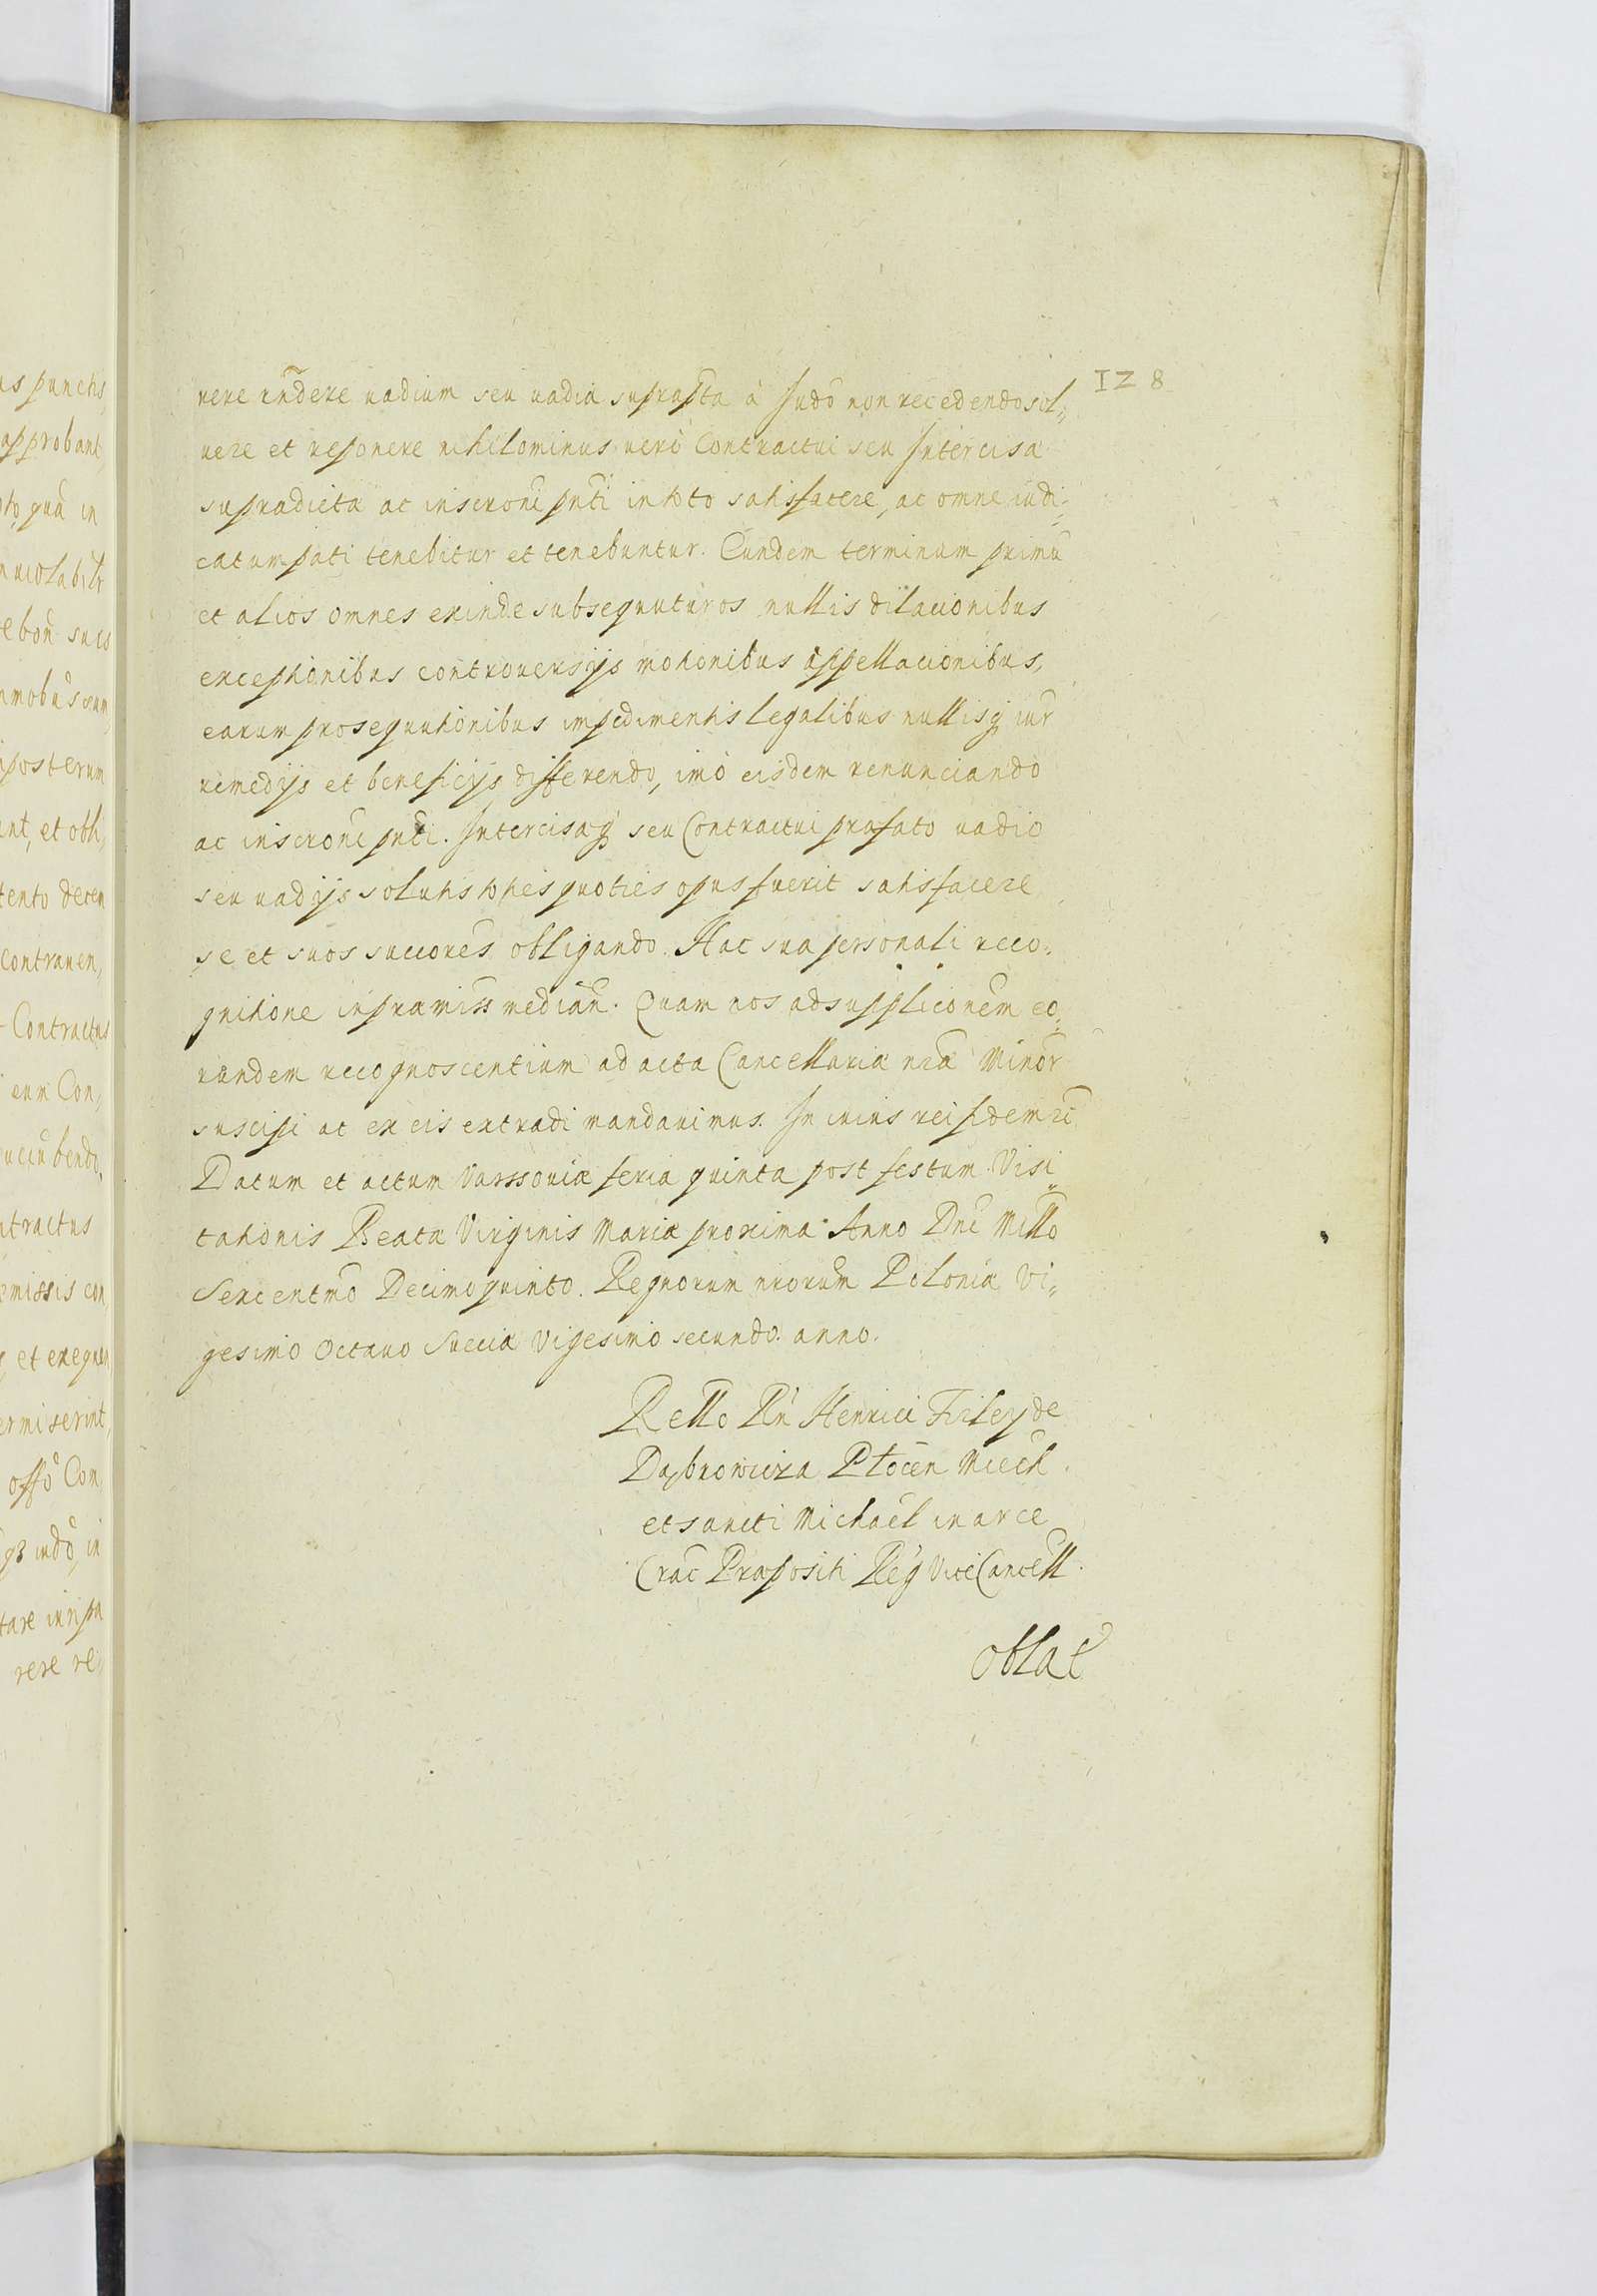 us punctis,
approbant,
oto, quā in
nuiolabilr
e bon suis
mobus sum,
posterum
ant, et obli,
tento decem
contrauen,
Contractus
eum Con,
uccūbendo,
ntractus
emissis con
et exequen
ermiserint,
offō Con
iudō, in
rere re,
128
rere rñdere uadium seu uadia suprapta à Judō non recedendo sol„
uere et reponere nihilominus uerò Contractui seu Intercisæ
supradictæ ac inscronī pnti in toto satisfacere, ac omne iudi„
catum pati tenebitur et tenebuntur. Eundem terminum primū
et alios omnes exinde subsequuturos nullis dilacionibus
exceptionibus controuersijs motionibus appellacionibus,
earum prosequutionibus impedimentis legalibus nullisq iur
remedijs et beneficijs differendo, imò eisdem renunciando
ac inscronī pnti. Intercisæq seu Contractui præfato uadio
seu uadijs solutis toties quoties opus fuerit satisfacere
se et suos succores obligando. Hac sua personali reco„
gnitione in præmiss mediāñ. Quam nos ad suppliconēm eo„
rundem recognoscentium ad acta Cancellariæ nræ Minor
suscipi ac ex eis extradi mandauimus. In cuius rei fidem rc
Datum et actum Varssouiæ feria quinta post festum Visi„
tationis Beatæ Virginis Mariæ proxima Anno Dnī Millō
Sexcentmō Decimoquinto. Regnorum nrorum Poloniæ Vi„
gesimo Octauo Sueciæ Vigesimo secundo anno.
Rello Rñ Henrici Firley de
Dąbrowicza Plocen Miech
et sancti Michael in arce
Crac Præpositi Reg ViceCancell.
oblat